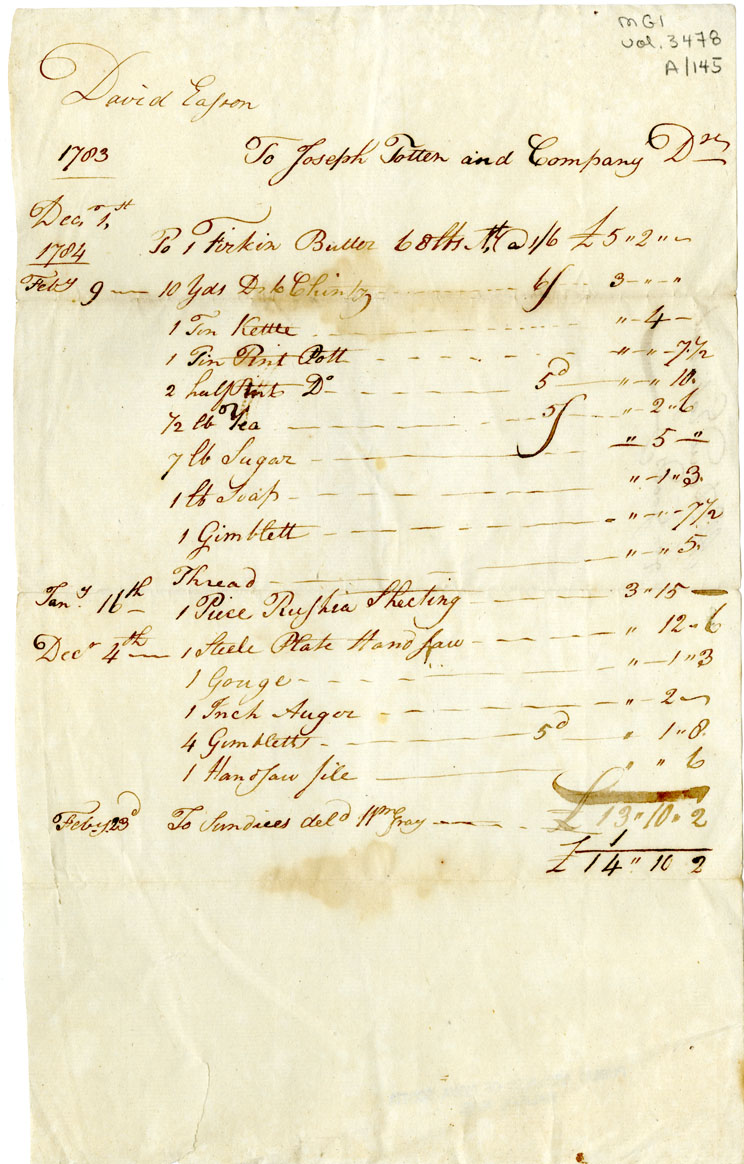 MG1
vol. 3478
A/145
David Easson
1783 To Joseph Totten and Company Drs
Decr 1st
1784 To 1 Firkin Butter 68lbs Nt @ 1/6 £ 5 " 2 " ~
Feby 9 — 10 Yds Chintz 6/ 3 - " - "
1 Tin Kettle " - 4 -
1 Tin Pint Pott " - " - 7½
2 half Pints Do 5d " - " 10
½ lb of Tea 5/ " - 2 - 6
7 lb Sugar " - 5 - "
1 lb Soap " - 1 " 3
1 Gimblett " - " - 7½
Thread " - " 5
Jany 16th 1 Piece Rushia Sheeting 3 " 15 —
Decr 4th — 1 Steele Plate Handsaw " 12 - 6
1 Gouge " - 1 " 3
1 Inch Auger " - 2 ~
4 Gimbletts 5d " 1 " 8
1 Handsaw file " " 6
£ 13 " 10 " 2
Feby 23d To Sundries deld Wm Gray — 1
£ 14 " 10 2